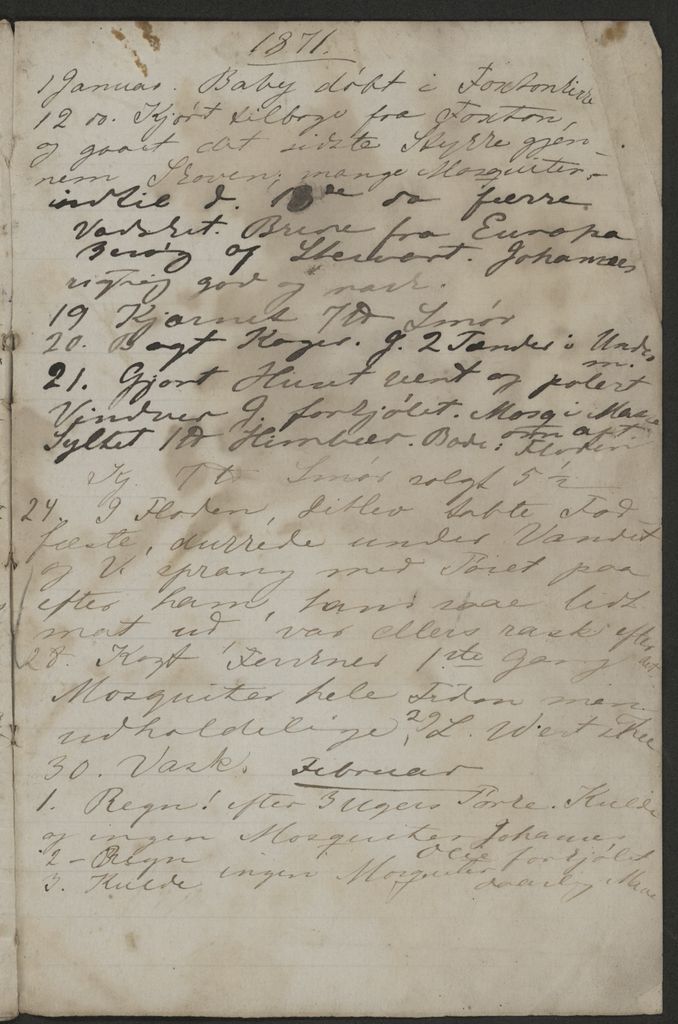 1871.
1 Januar. Baby döbt i Foxtonkirke
12 do. Kjört tilbage fra Foxton,
og gaaet det sidste Stykke gjen-
nem Skoven; mange Mosquiter,
indtil d. 13de da færre
Vadsket. Breve fra Europa
Besøg af Stewart. Johannes
rigtig god og rask.
19 Kjærnet 7 ℔ Smör
20. Bagt Kager. J. 2 Tænder i Under
m.
21. Gjort Huset rent og poleret
Vinduer J. forkjölet. Mosq i Masse
Syltet 1 ℔ Himbær. Bade i Floden
om aft
Kj. 7 ℔ Smör solgt 5½
24. I Floden, Ditlev tabte Fod-
fæste, under Vandet
og V. sprang med Töiet paa
efter ham, han saae lidt
mat ud, var ellers rask efter det
28. Kogt 1ste Gang
Mosquiter hele Tiden men
udholdelige, 29 L. West Thee
30. Vask. Februar
1. Regn! efter 3 Ugers Törke. Kulde
og ingen Mosquiter Johannes
2 - Regn forkjölet
3. Kulde ingen Mosquiter daarlig Mave